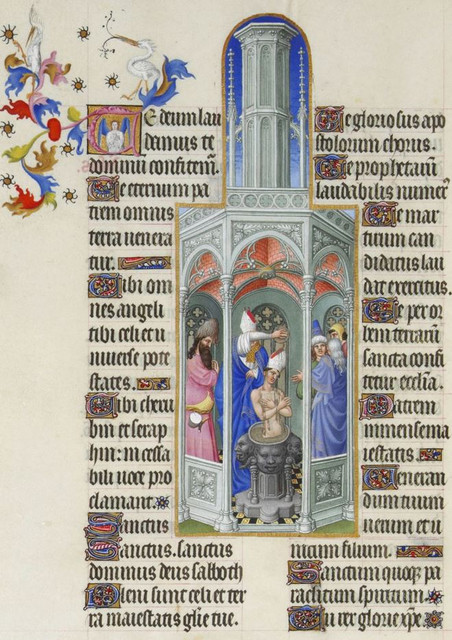 Te deum lau
damus te
dominū confitem̄.
Te eternum pa
trem omnis
terra uenera
tur.
Tibi om
nes angeli
tibi celi et u
niuerse pote
states.
Tibi cheru
bin et serap
hin: in cessa
bili uoce pro
clamant.
Sanctus
Sanctus. sanctus
dominus deus sabaoth
Pleni sunt celi et ter
ra maiestatis glīe tue.
Te gloriosus apo
stolorum chorus.
Te prophetarū
laudabilis numerꝰ
Te mar
tirum can
didatus lau
dat exercitus.
Te per or
bem terrarū
sancta confi
tetur ecclīa.
Patrem
immense ma
iestatis.
Veneran
dum tuum
uerum et u
nicum filium.
Sanctum quoqꝫ pa
raclitum spiritum.
Tu rex glorie xp̄e.